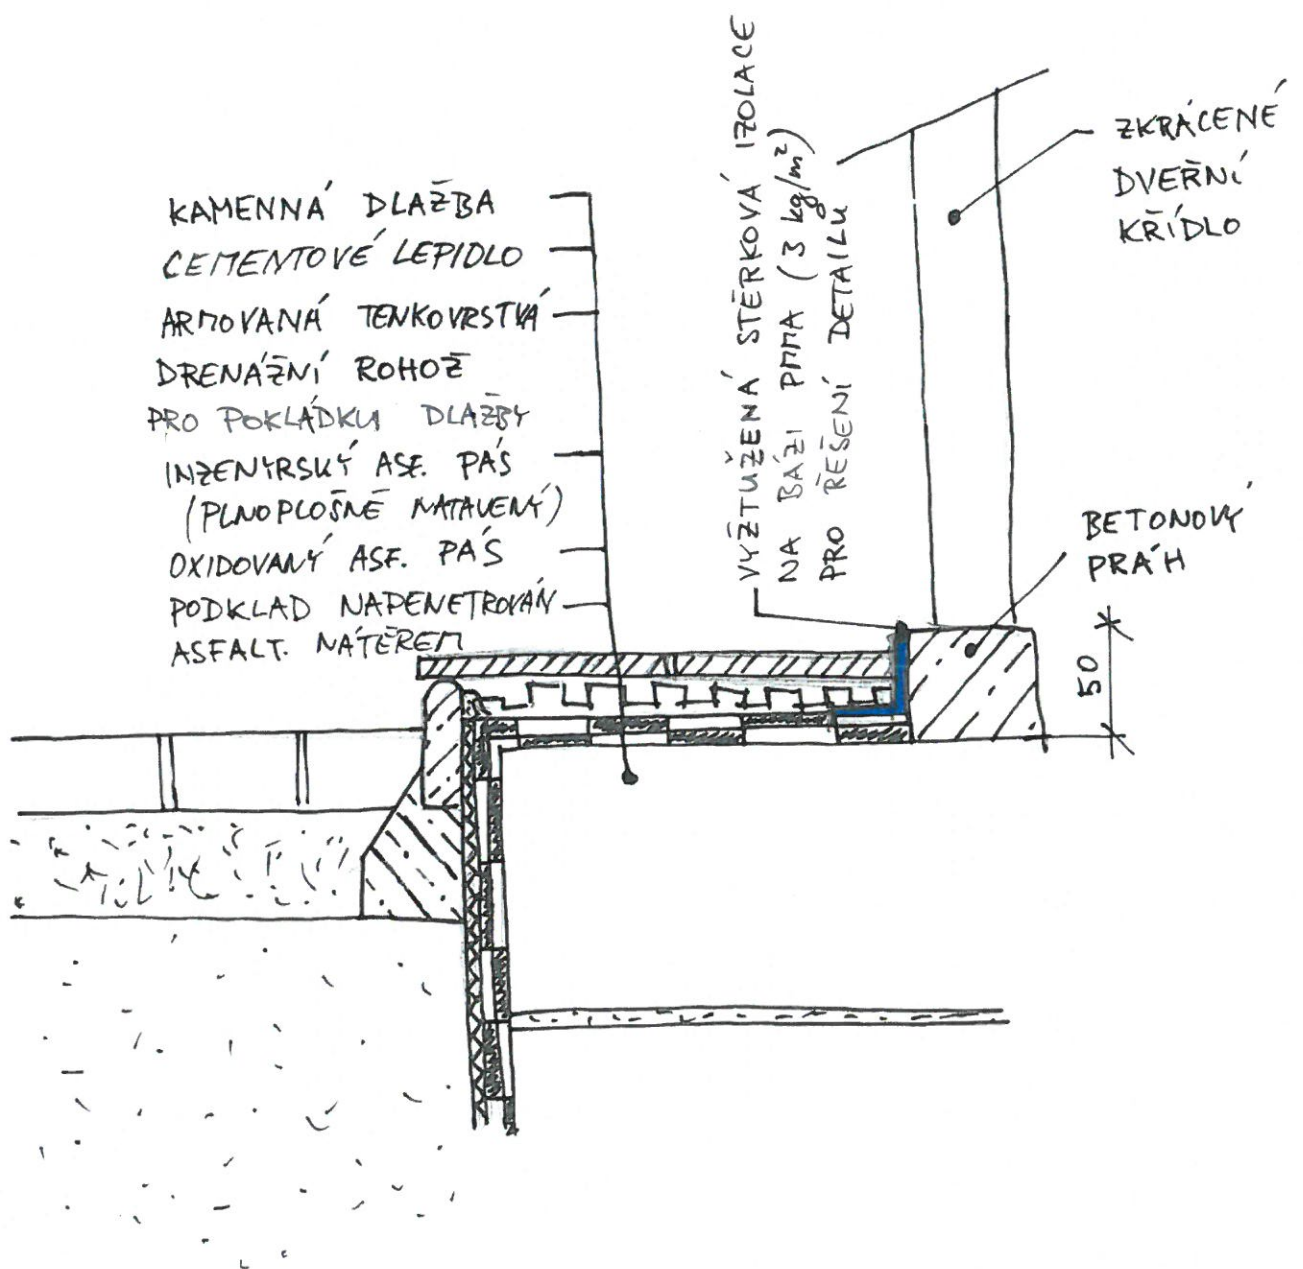 KAMENNÁ DLAŽBA
CEMENTOVÉ LEPIDLO
ARMOVANÁ TENKOVRSTVÁ
DRENÁŽNÍ ROHOŽ
PRO POKLÁDKU DLAŽBY
INŽENÝRSKÝ ASF. PÁS
(PLNOPLOŠNĚ NATAVENÝ)
OXIDOVANÝ ASF. PÁS
PODKLAD NAPENETROVÁN
ASFALT. NÁTĚREM
VYŽTUŽENÁ STĚRKOVÁ IZOLACE
NA BÁZI PMMA (3 kg/m²)
PRO ŘEŠENÍ DETAILU
ZKRÁCENÉ
DVEŘNÍ
KŘÍDLO
BETONOVÝ
PRÁH
50